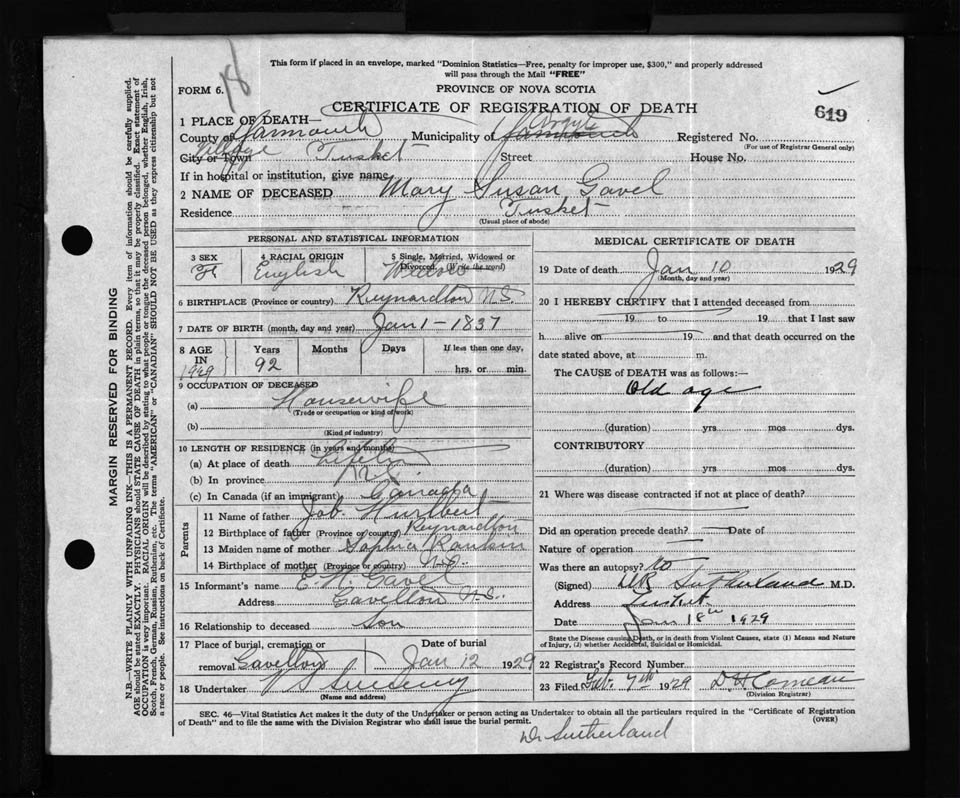 This form if placed in an envelope, marked "Dominion Statistics—Free, penalty for improper use, $300," and properly addressed
will pass through the Mail "FREE"
18
FORM 6.
PROVINCE OF NOVA SCOTIA
CERTIFICATE OF REGISTRATION OF DEATH
619
1 PLACE OF DEATH—
County of Yarmouth Municipality of Yarmouth Argyle Registered No.
(For use of Registrar General only)
Village City or Town Tusket Street House No.
If in hospital or institution, give name
2 NAME OF DECEASED Mary Susan Gavel
Residence Tusket
(Usual place of abode)
PERSONAL AND STATISTICAL INFORMATION
3 SEX 4 RACIAL ORIGIN 5 Single, Married, Widowed or Divorced, (Write the word)
F English Widow
6 BIRTHPLACE (Province or country) Reynardton N.S.
7 DATE OF BIRTH (month, day and year) Jan 1 - 1837
8 AGE IN 1929 Years 92 Months Days If less than one day, hrs. or min.
9 OCCUPATION OF DECEASED
(a) Housewife
(Trade or occupation or kind of work)
(b)
(Kind of industry)
10 LENGTH OF RESIDENCE (in years and months)
(a) At place of death Life
(b) In province N.S.
(c) In Canada (if an immigrant) Canada
Parents
11 Name of father Job Hurlbert
12 Birthplace of father (Province or country) Reynardton
13 Maiden name of mother Sophia Rankin
14 Birthplace of mother (Province or country) N.S.
15 Informant's name E. N. Gavel
Address Gavelton N.S.
16 Relationship to deceased Son
17 Place of burial, cremation or removal Gavelton Date of burial Jan 12 1929
18 Undertaker V S Sweeny
(Name and address)
MEDICAL CERTIFICATE OF DEATH
19 Date of death Jan 10 1929
(Month, day and year)
20 I HEREBY CERTIFY that I attended deceased from
19 to 19 that I last saw
h alive on 19 and that death occurred on the
date stated above, at m.
The CAUSE of DEATH was as follows:—
Old age
(duration) yrs mos dys.
CONTRIBUTORY
(duration) yrs mos dys.
21 Where was disease contracted if not at place of death?
Did an operation precede death? Date of
Nature of operation
Was there an autopsy? No
(Signed) Sutherland M.D.
Address Tusket
Date Jan 18th 1929
State the Disease causing Death, or in death from Violent Causes, state (1) Means and Nature
of Injury, (2) whether Accidental, Suicidal or Homicidal.
22 Registrar's Record Number
23 Filed Feb. 7th 1929 D H Comeau
(Division Registrar)
SEC. 46—Vital Statistics Act makes it the duty of the Undertaker or person acting as Undertaker to obtain all the particulars required in the "Certificate of Registration
of Death" and to file the same with the Division Registrar who shall issue the burial permit.
(OVER)
Dr Sutherland
MARGIN RESERVED FOR BINDING
N.B.—WRITE PLAINLY WITH UNFADING INK—THIS IS A PERMANENT RECORD. Every item of information should be carefully supplied.
AGE should be stated EXACTLY. PHYSICIANS should STATE CAUSE OF DEATH in plain terms, so that it may be properly classified. Exact statement of
OCCUPATION is very important. RACIAL ORIGIN will be described by stating to what people or tongue the deceased person belonged, whether English, Irish,
Scotch, French, German, Russian, Ruthenian, etc. The terms "AMERICAN" or "CANADIAN" SHOULD NOT BE USED as they express citizenship but not
a race or people. See instructions on back of Certificate.